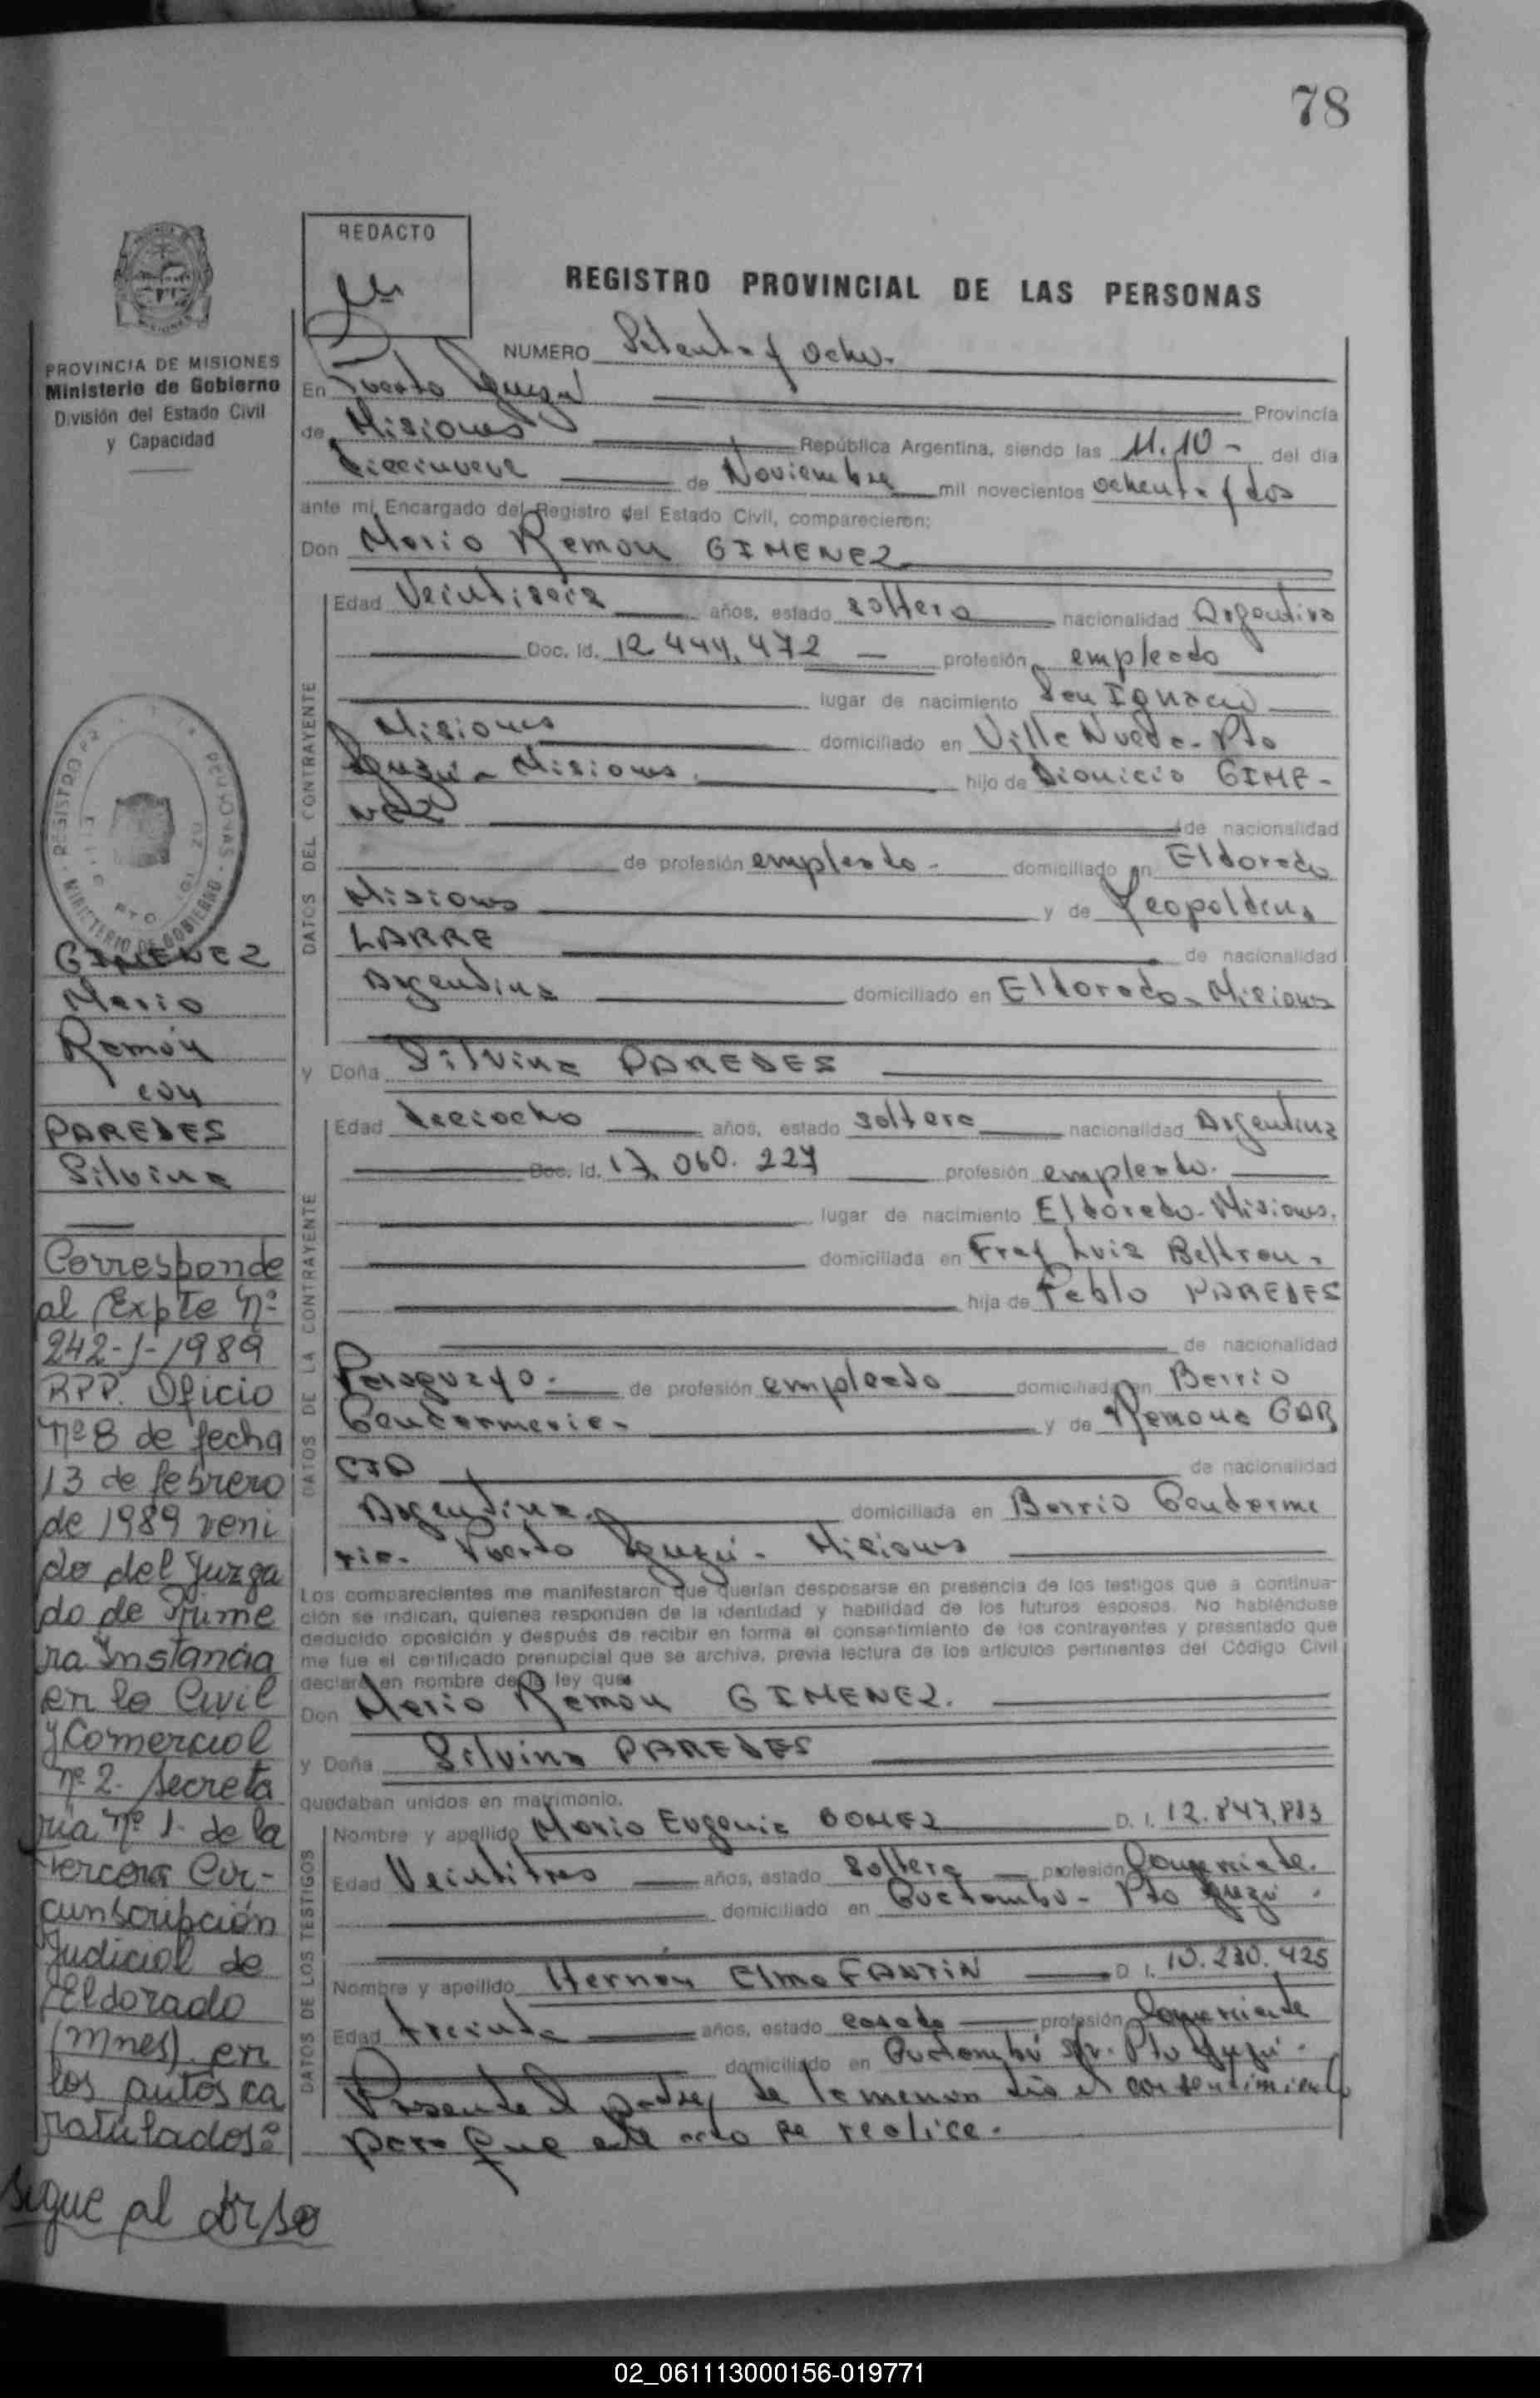 78
REDACTO
REGISTRO PROVINCIAL DE LAS PERSONAS
PROVINCIA DE MISIONES
Ministerio de Gobierno
División del Estado Civil
y Capacidad
NUMERO Setenta y ocho.
En Puerto Iguazú Provincia
de Misiones República Argentina, siendo las 11.10 - del día
diecinueve de Noviembre mil novecientos ochenta y dos
ante mi, Encargado del Registro del Estado Civil, comparecieron:
Don Mario Ramon GIMENEZ
DATOS DEL CONTRAYENTE
Edad Veintiseis años, estado soltero nacionalidad Argentino
Doc. Id. 12.444.472 - profesión empleado
lugar de nacimiento San Ignacio
Misiones domiciliado en Villa Nueva - Pto
Iguazú - Misiones. hijo de Dionicio GIME-
NEZ de nacionalidad
de profesión empleado - domiciliado en Eldorado
Misiones y de Leopoldina
LARRE de nacionalidad
Argentina domiciliado en Eldorado - Misiones
y Doña Silvina PAREDES
DATOS DE LA CONTRAYENTE
Edad dieciocho años, estado soltera nacionalidad Argentina
Doc. Id. 17.060.227 profesión empleada.
lugar de nacimiento Eldorado - Misiones.
domiciliada en Fray Luis Beltran -
hija de Pablo PAREDES
de nacionalidad
Paraguayo. de profesión empleado domiciliado en Barrio
Gendarmeria - y de Ramona GAR
CIA de nacionalidad
Argentina. domiciliada en Barrio Gendarme
ria - Puerto Iguazú - Misiones
Los comparecientes me manifestaron que querían desposarse en presencia de los testigos que a continua-
ción se indican, quienes responden de la identidad y habilidad de los futuros esposos. No habiéndose
deducido oposición y después de recibir en forma el consentimiento de los contrayentes y presentado que
me fue el certificado prenupcial que se archiva, previa lectura de los artículos pertinentes del Código Civil
declaré en nombre de la ley que:
Don Mario Ramon GIMENEZ.
y Doña Silvina PAREDES
quedaban unidos en matrimonio.
DATOS DE LOS TESTIGOS
Nombre y apellido Maria Eugenia GOMEZ D. I. 12.847.883
Edad Veintitres años, estado soltera profesión Comerciante.
domiciliado en Guatambú - Pto Iguazú.
Nombre y apellido Hernán Elmo FANTIN D. I. 10.230.425
Edad treinta años, estado casado profesión Comerciante
domiciliado en Guatambú s/n. Pto Iguazú.
Presente el padre de la menor dió el consentimiento
para que este acto se realice.
GIMENEZ
Mario
Ramón
con
PAREDES
Silvina
Corresponde
al Expte Nº
242-J-1989
RPP. Oficio
Nº 8 de fecha
13 de febrero
de 1989 veni
do del Juzga
do de Prime
ra Instancia
en lo Civil
y Comercial
Nº 2. Secreta
ria Nº 1 de la
tercera Cir-
cunscripción
Judicial de
Eldorado
(Mnes). en
los autos ca
ratulados:
sigue al dorso
02_061113000156-019771